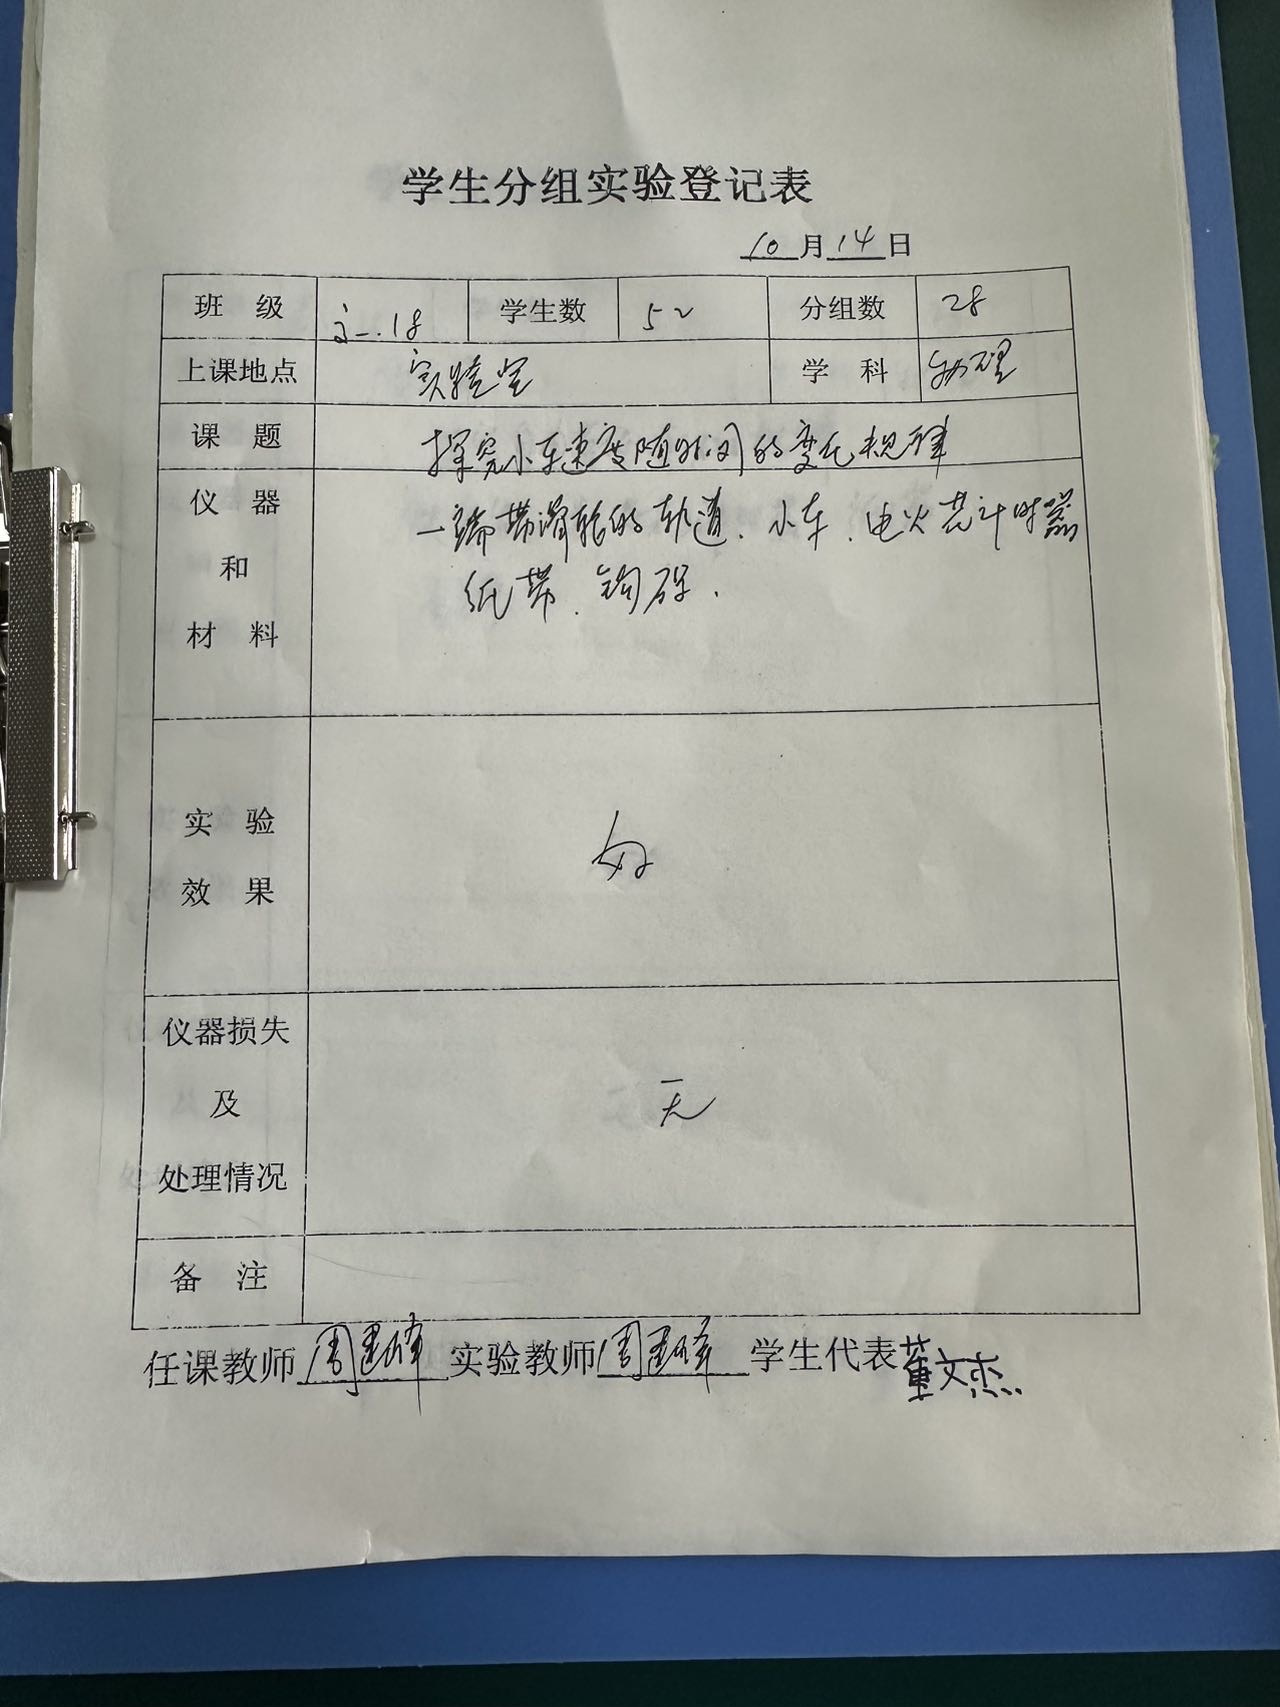 学生分组实验登记表
10月14日
班 级 高一.18 学生数 52 分组数 28
上课地点 实验室 学 科 物理
课 题 探究小车速度随时间的变化规律
仪 器 一端带滑轮的轨道、小车、电火花计时器
和 纸带、钩码.
材 料
实 验
效 果 好
仪器损失
及 无
处理情况
备 注
任课教师 周建峰 实验教师 周建峰 学生代表 董文杰